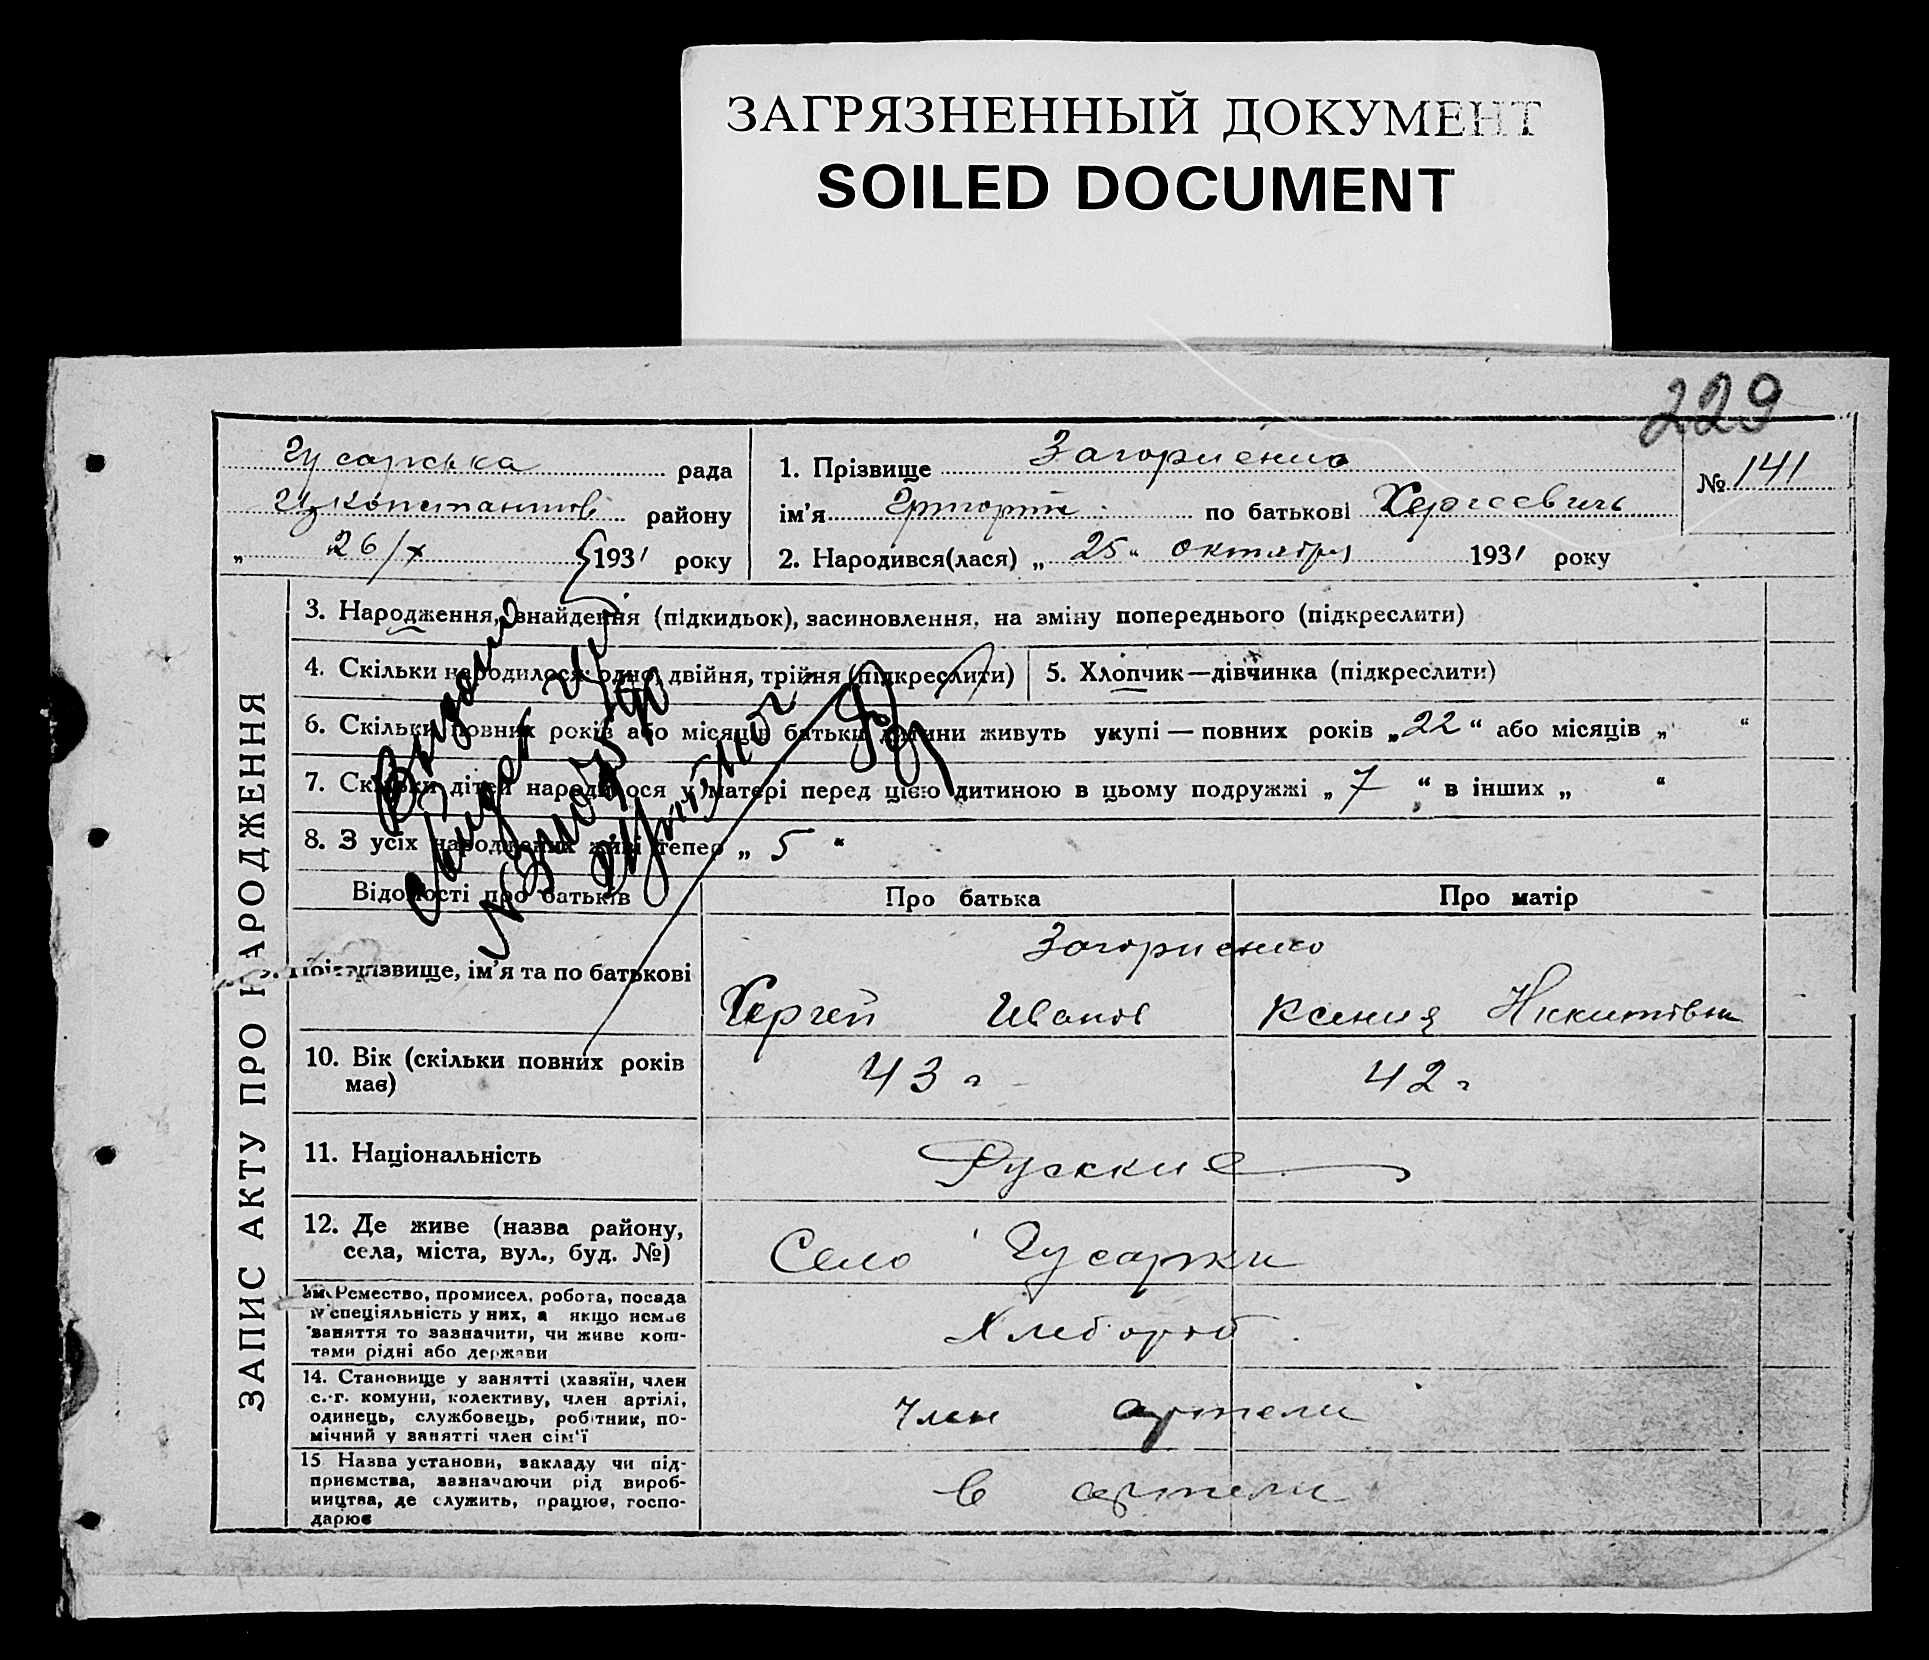 ЗАГРЯЗНЕННЫЙ ДОКУМЕНТ
SOILED DOCUMENT
229
Гусарська рада
району
„ 26/х 1931 року
1. Прізвище
ім'я Григорій по батькові Сергеевичь
2. Народився(лася) „ 25 " октября 1931 року
№ 141
ЗАПИС АКТУ ПРО НАРОДЖЕННЯ
3. Народження, знайдення (підкидьок), засиновлення, на зміну попереднього (підкреслити)
4. Скільки народилося: одно, двійня, трійня (підкреслити)
5. Хлопчик—дівчинка (підкреслити)
6. Скільки повних років або місяців батьки дитини живуть укупі — повних років „ 22 " або місяців „ "
7. Скільки дітей народилося у матері перед цією дитиною в цьому подружжі „ 7 " в інших „ "
8. З усіх народжених живі тепер „ 5 "
Відомості про батьків
Про батька
Про матір
прізвище, ім'я та по батькові
Сергей Иванов
Ксения Никитовна
10. Вік (скільки повних років
має)
43 г
42 г
11. Національність
Русские
12. Де живе (назва району,
села, міста, вул., буд. №)
Село Гусарки
Ремество, промисел, робота, посада
спеціяльність у них, а якщо немає
заняття то зазначити, чи живе кош-
тами рідні або держави
Хлебороб
14. Становище у занятті (хазяїн, член
с.-г. комуни, колективу, член артілі,
одинець, службовець, робітник, по-
мічний у занятті член сім'ї
Член артели
15 Назва установи, закладу чи під-
приємства, зазначаючи рід вироб-
ництва, де служить, працює, госпо-
дарює
в артели